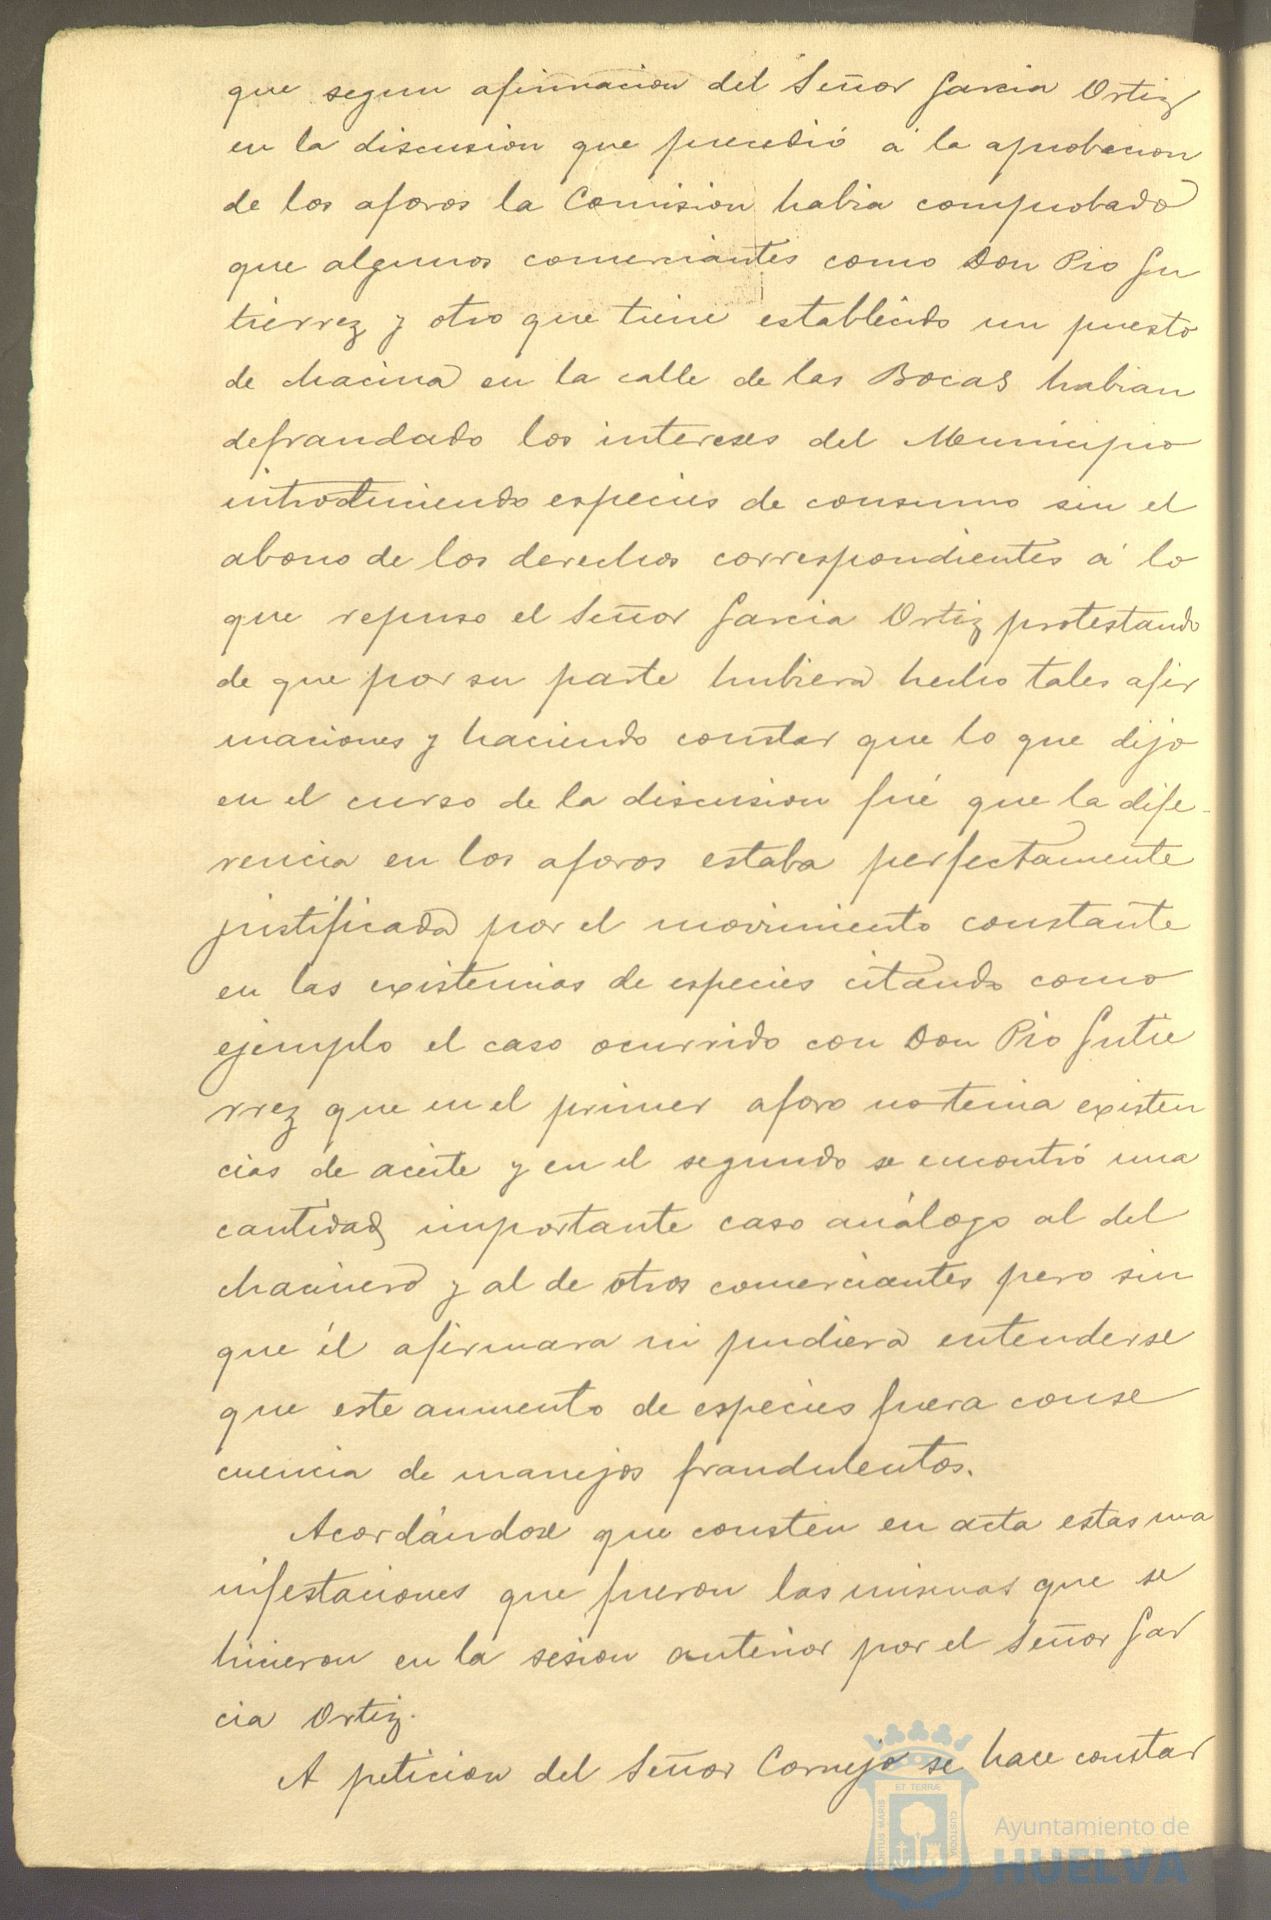 que segun afirmacion del Señor Garcia Ortiz
en la discusion que precedió á la aprobacion
de los aforos la Comision habia comprobado
que algunos comerciantes como Don Pio Gu
tierrez y otro que tiene establecido un puesto
de chacina en la calle de las Bocas habian
defraudado los intereses del Municipio
introduciendo especies de consumo sin el
abono de los derechos correspondientes á lo
que repuso el Señor Garcia Ortiz protestando
de que por su parte hubiera hecho tales afir
maciones y haciendo constar que lo que dijo
en el curso de la discusion fué que la dife-
rencia en los aforos estaba perfectamente
justificada por el movimiento constante
en las existencias de especies citando como
ejemplo el caso ocurrido con Don Pio Gutie
rrez que en el primer aforo no tenia existen
cias de aceite y en el segundo se encontró una
cantidad importante caso análogo al del
chacinero y al de otros comerciantes pero sin
que él afirmara ni pudiera entenderse
que este aumento de especies fuera conse
cuencia de manejos fraudulentos.
Acordándose que consten en acta estas ma
nifestaciones que fueron las mismas que se
hicieron en la sesion anterior por el Señor Gar
cia Ortiz.
A peticion del Señor Cornejo se hace constar
ET TERRÆ
PORTUS MARIS
CUSTODIA
Ayuntamiento de
HUELVA